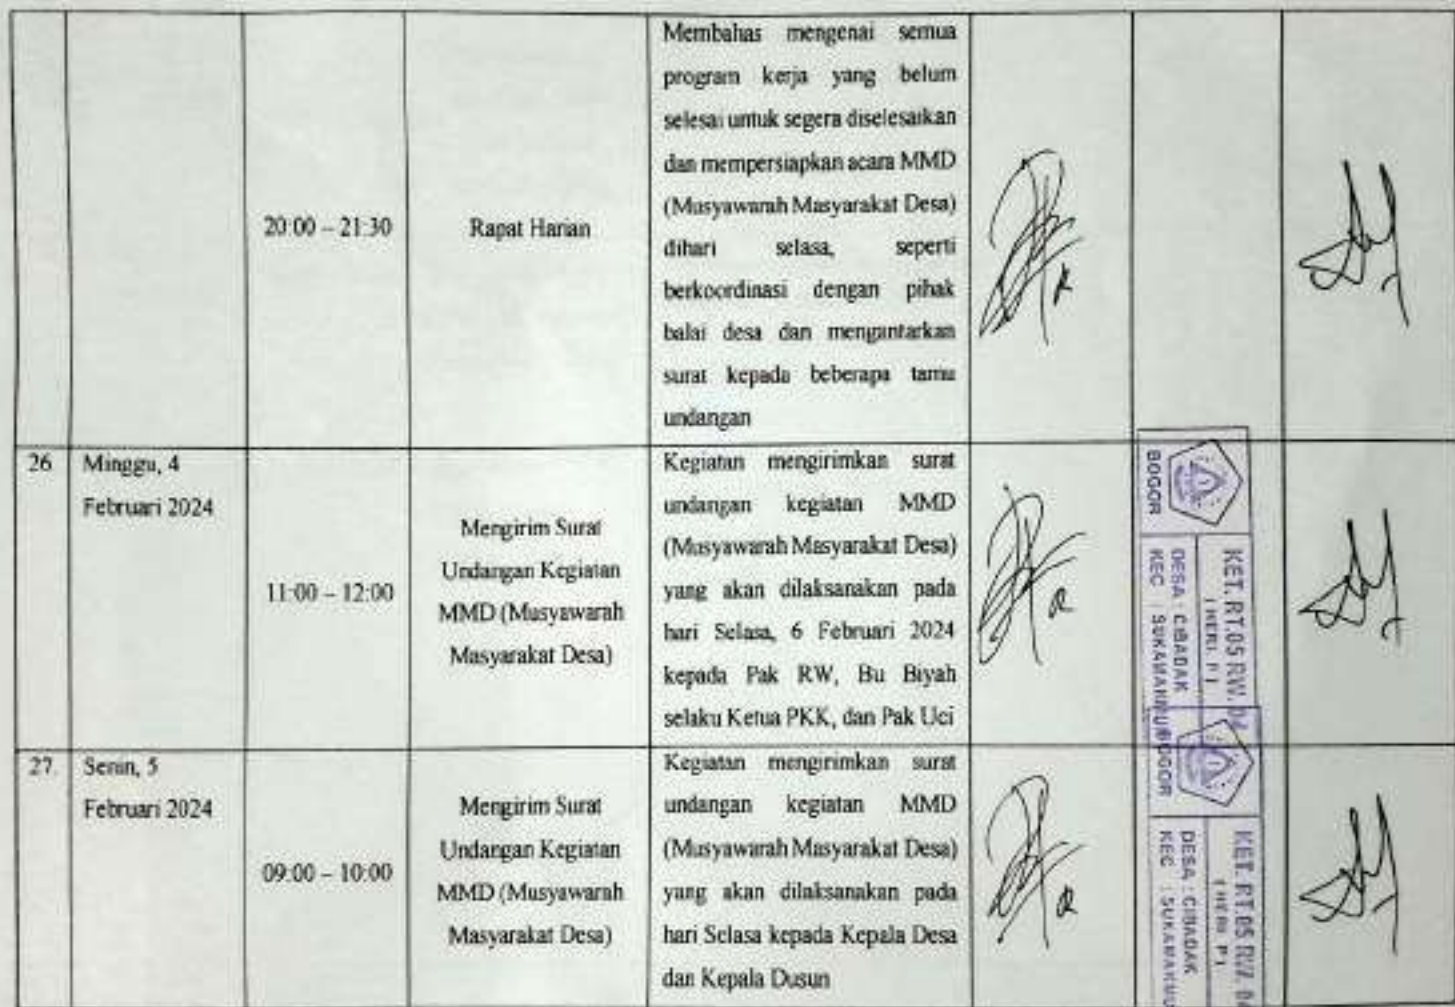 Membahas mengenai semua
program kerja yang belum
selesai untuk segera diselesaikan
dan mempersiapkan acara MMD
(Musyawarah Masyarakat Desa)
20:00 – 21:30
Rapat Harian
dihari selasa, seperti
berkoordinasi dengan pihak
balai desa dan mengantarkan
surat kepada beberapa tamu
undangan
26
Minggu, 4
Februari 2024
11:00 – 12:00
Mengirim Surat
Undangan Kegiatan
MMD (Musyawarah
Masyarakat Desa)
Kegiatan mengirimkan surat
undangan kegiatan MMD
(Musyawarah Masyarakat Desa)
yang akan dilaksanakan pada
hari Selasa, 6 Februari 2024
kepada Pak RW, Bu Biyah
selaku Ketua PKK, dan Pak Uci
KET. RT.05 RW. 04
( HERI. P )
DESA : CIBADAK
KEC : SUKAMAKMUR
BOGOR
27.
Senin, 5
Februari 2024
09:00 – 10:00
Mengirim Surat
Undangan Kegiatan
MMD (Musyawarah
Masyarakat Desa)
Kegiatan mengirimkan surat
undangan kegiatan MMD
(Musyawarah Masyarakat Desa)
yang akan dilaksanakan pada
hari Selasa kepada Kepala Desa
dan Kepala Dusun
KET. RT.05 RW. 04
( HERI. P )
DESA : CIBADAK
KEC : SUKAMAKMU
BOGOR